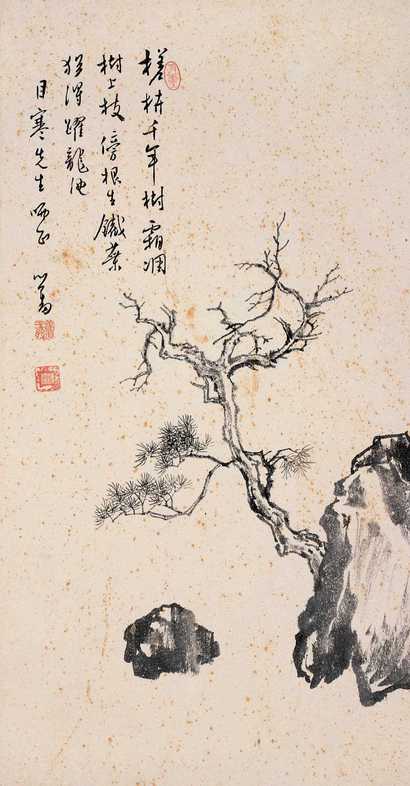 槎枿千年樹霜凋
樹上枝傍根生鐵葉
猶得躍龍池
目寒先生哂正
心畬